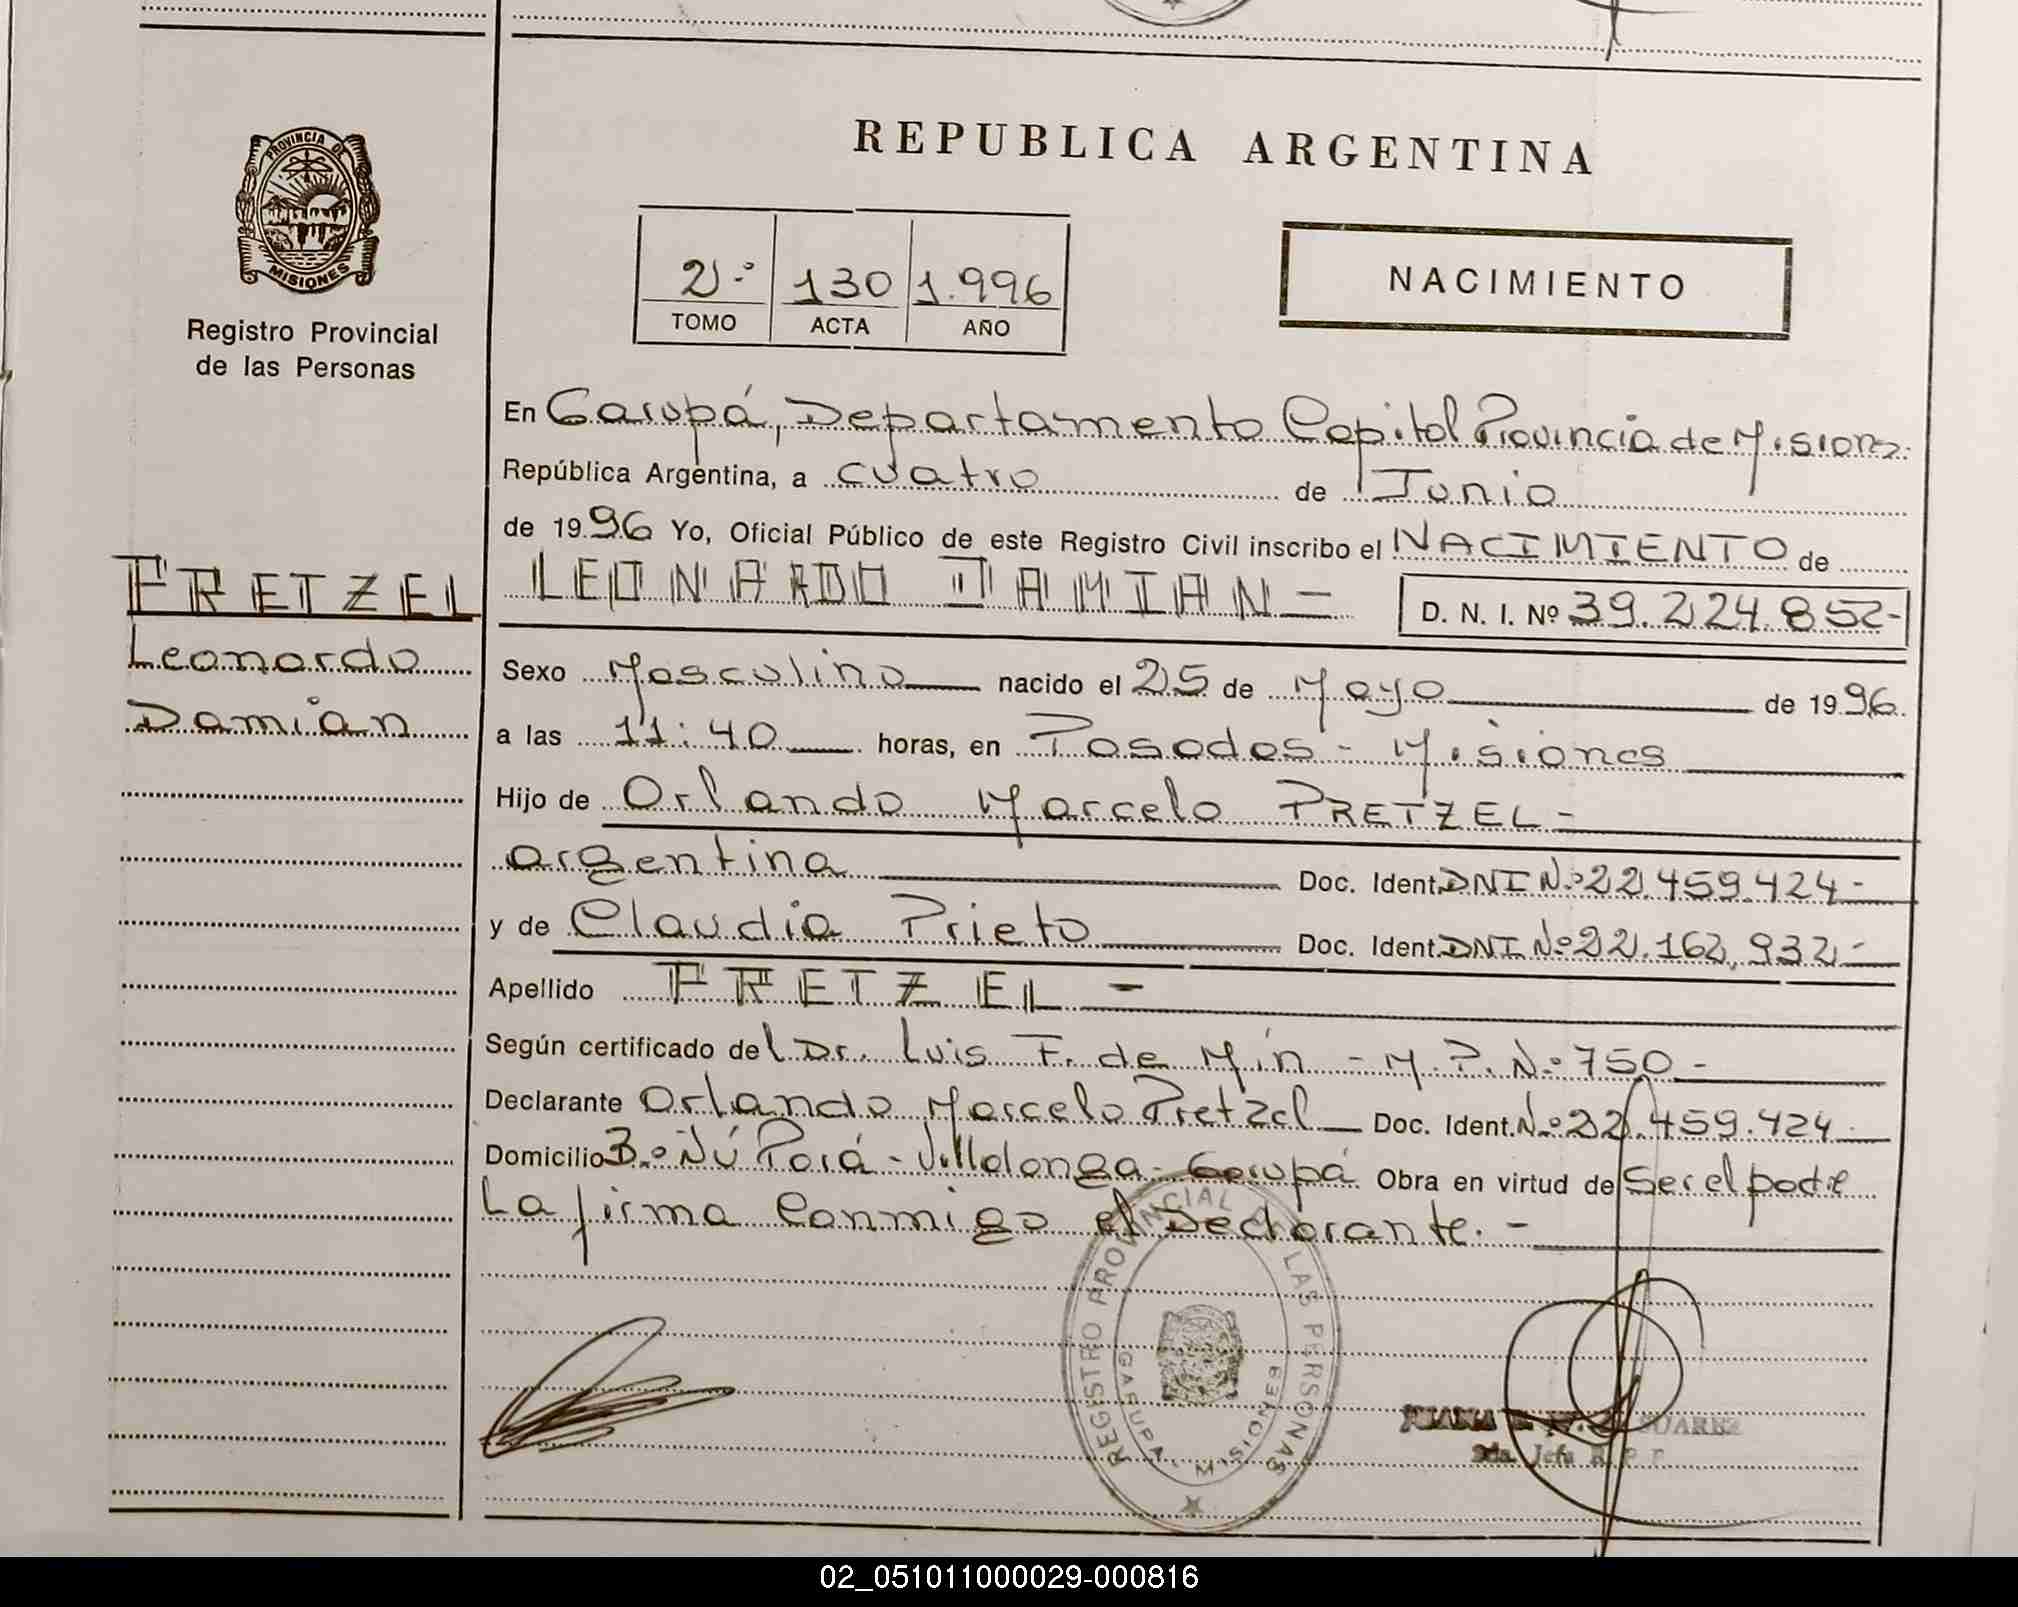 PROVINCIA DE
MISIONES
Registro Provincial
de las Personas
REPUBLICA ARGENTINA
2º 130 1.996
TOMO ACTA AÑO
NACIMIENTO
En Garupá, Departamento Capital Provincia de Misiones.
República Argentina, a cuatro de Junio
de 1996 Yo, Oficial Público de este Registro Civil inscribo el NACIMIENTO de
PRETZEL
Leonardo
Damian
LEONARDO DAMIAN - D. N. I. Nº 39.224.852-
Sexo Masculino nacido el 25 de Mayo de 1996.
a las 11:40 horas, en Posadas - Misiones
Hijo de Orlando Marcelo PRETZEL-
argentina Doc. Ident. DNI Nº 22.459.424-
y de Claudia Prieto Doc. Ident. DNI Nº 22.162.932-
Apellido PRETZEL-
Según certificado del Dr. Luis F. de Mín - M.P. Nº 750-
Declarante Orlando Marcelo Pretzel Doc. Ident. Nº 22.459.424-
Domicilio Bº Ñú Porá - Villalonga - Garupá Obra en virtud de Ser el padre
La firma Conmigo el Declarante.-
REGISTRO PROVINCIAL DE LAS PERSONAS
GARUPA - MISIONES
JUANA SUAREZ
2da. Jefa R. P. P.
02_051011000029-000816